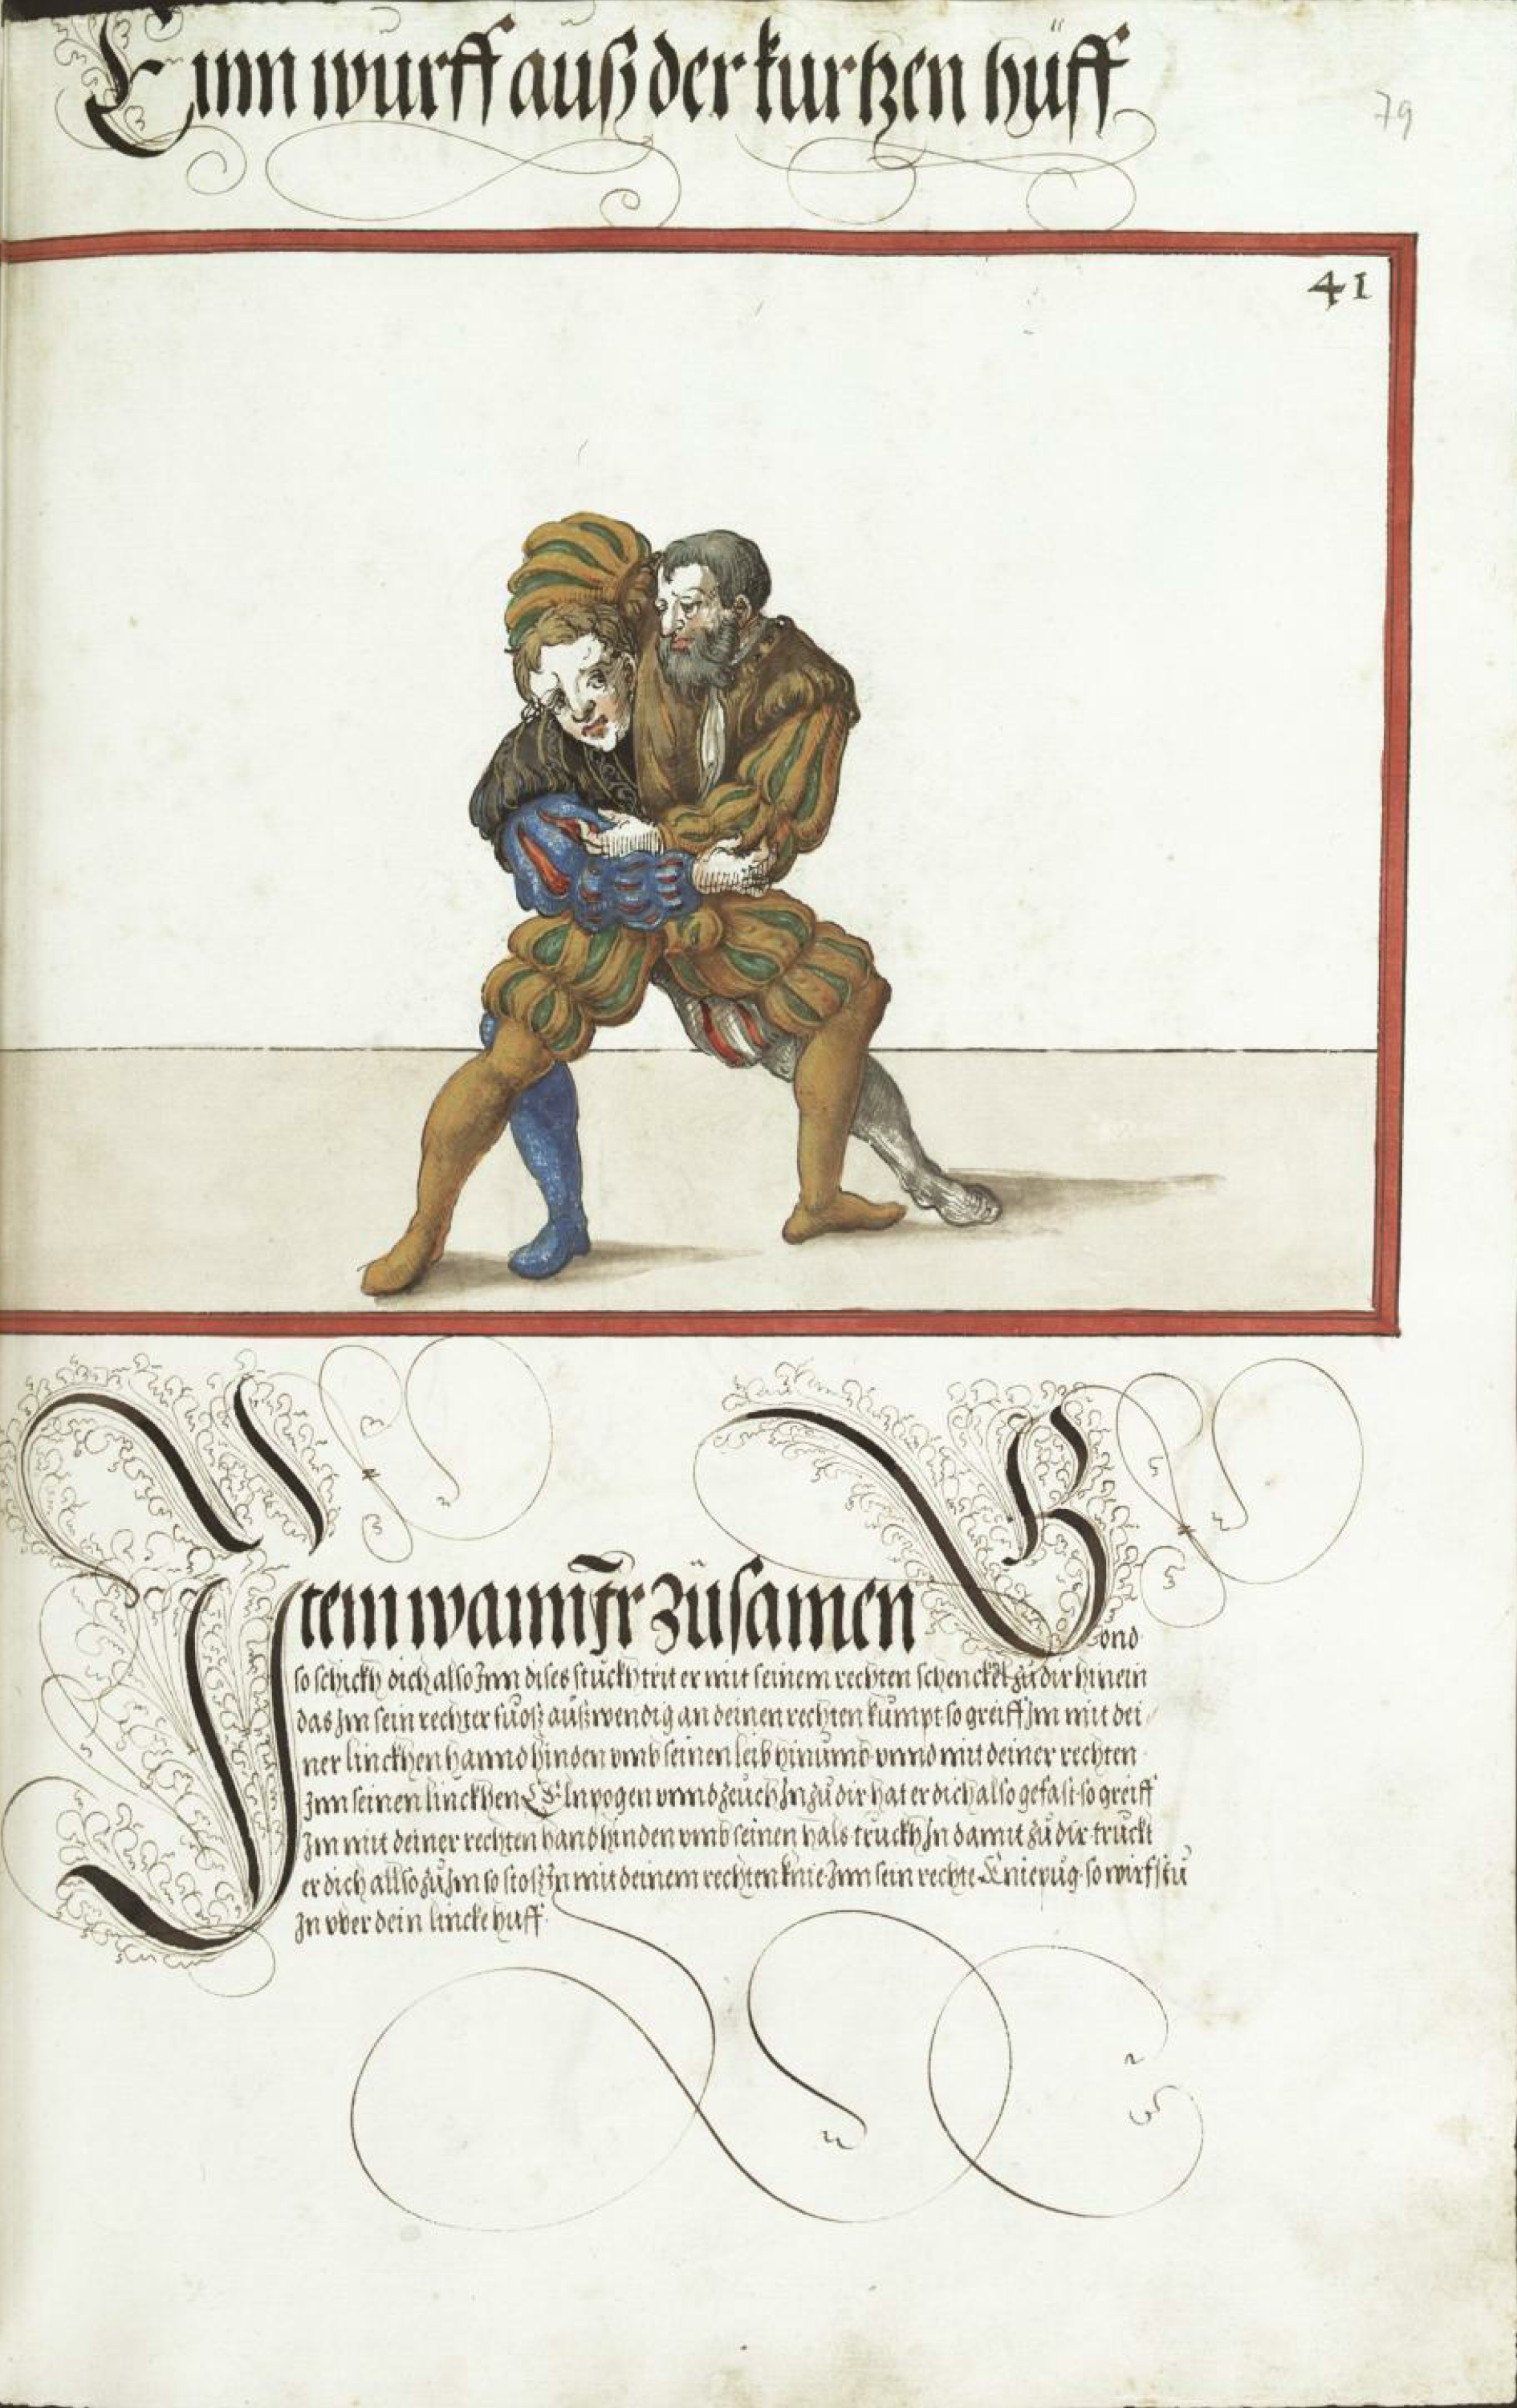 Einn wurff auß der kurtzen hüff
79
41
Item wann Ir zůsamen Bond
so schickh dich also Inn dises stuckh trit er mit seinem rechten schenckel zů dir hinein
das Im sein rechter fuoß außwendig an deinen rechten kumpt so greiff Im mit dei
ner linckhen hannd hinden vmb seinen leib hinumb vnnd mit deiner rechten
Inn seinen linckhen Elnpogen vnnd zeuch In zů dir hat er dich also gefast so greiff
Im mit deiner rechten hand hinden vmb seinen hals truckh In damit zů dir truckt
er dich allso zů Im so stoß In mit deinem rechten knie Inn sein rechte Kniepüg so wirfstu
In vber dein lincke huff